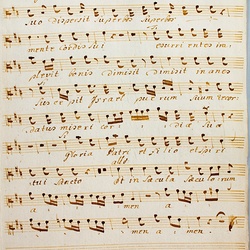 suo dispersit superbos superbos
mente cordis sui esurientes im
plevit bonis dimisit dimisit inanes
Israel puerum suum recor
datus misericor diae suae
gloria Patri et filio et spiri
tui Sancto et in saecula saeculorum
a men a
a men amen